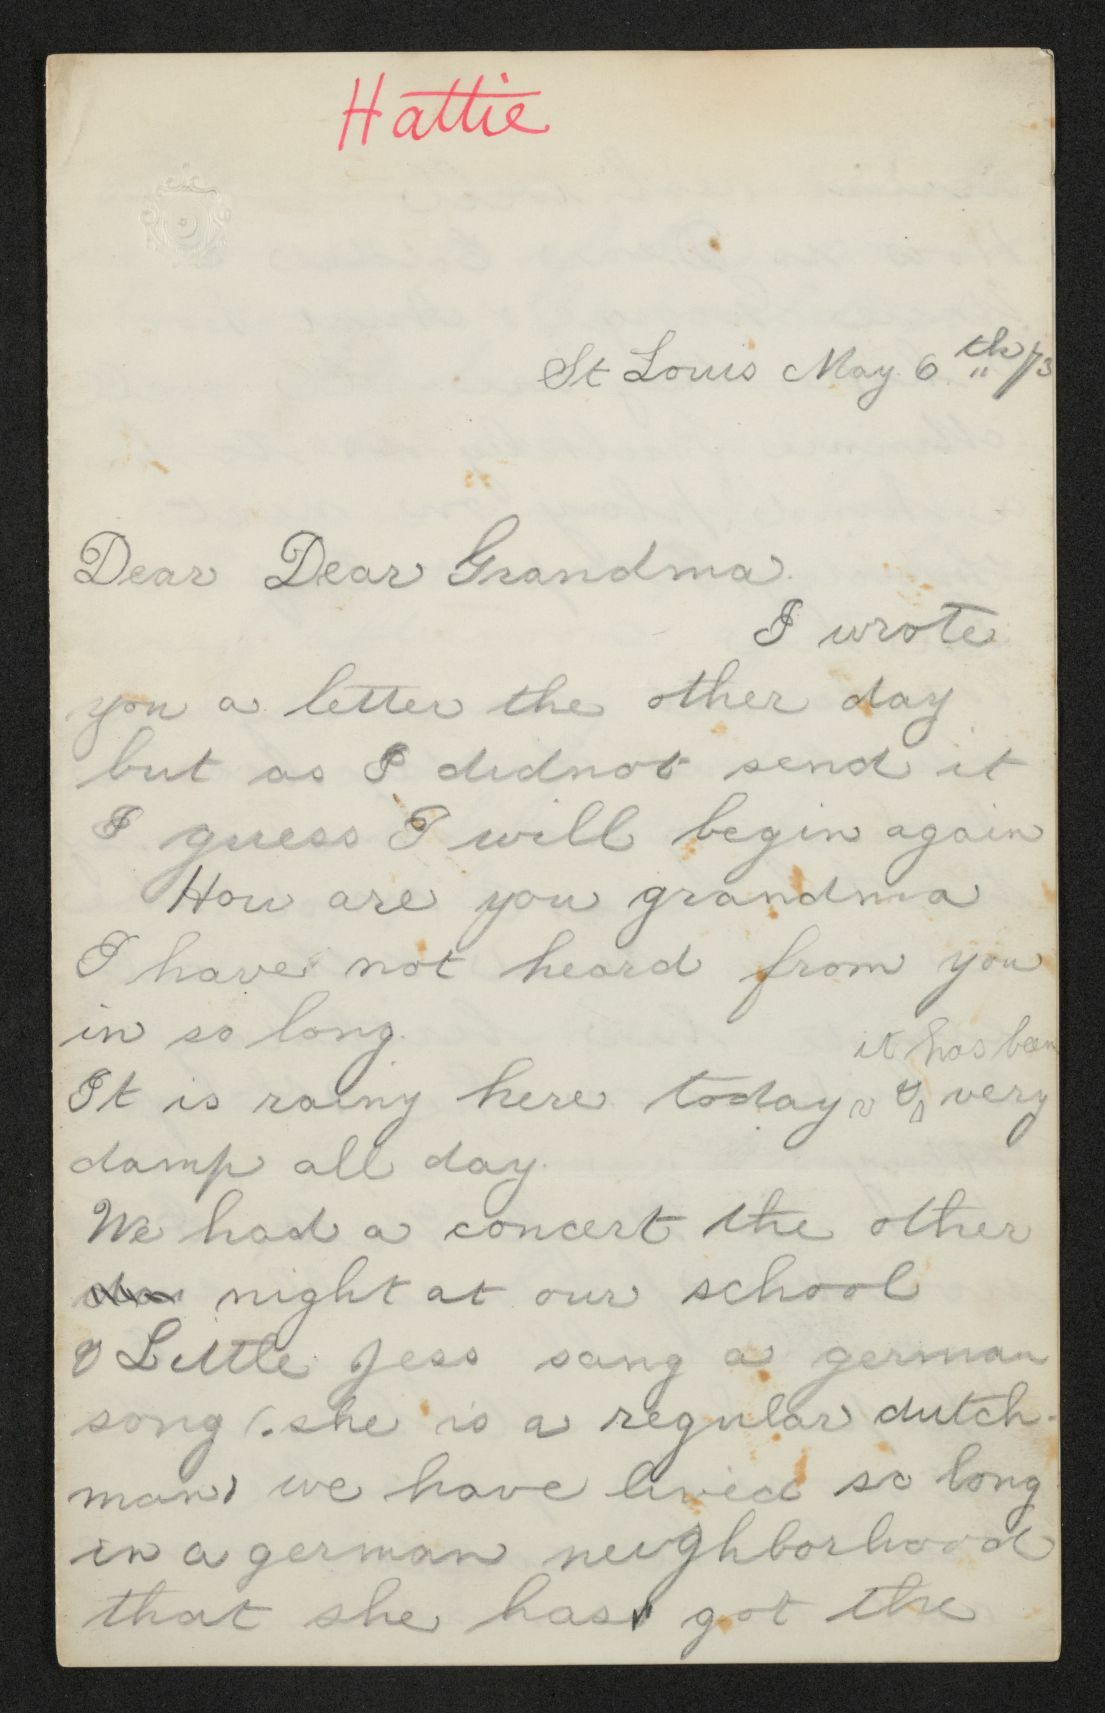 Hattie
St Louis May 6th /73
Dear Dear Grandma.
I wrote
you a letter the other day
but as I didnot send it
I guess I will begin again
How are you grandma
I have not heard from you
in so long.
it has been
It is rainy here today & very
damp all day.
We had a concert the other
night at our school
& Little Jess sang a german
song (. she is a regular dutch-
man) we have lived so long
in a german neighborhood
that she has got the